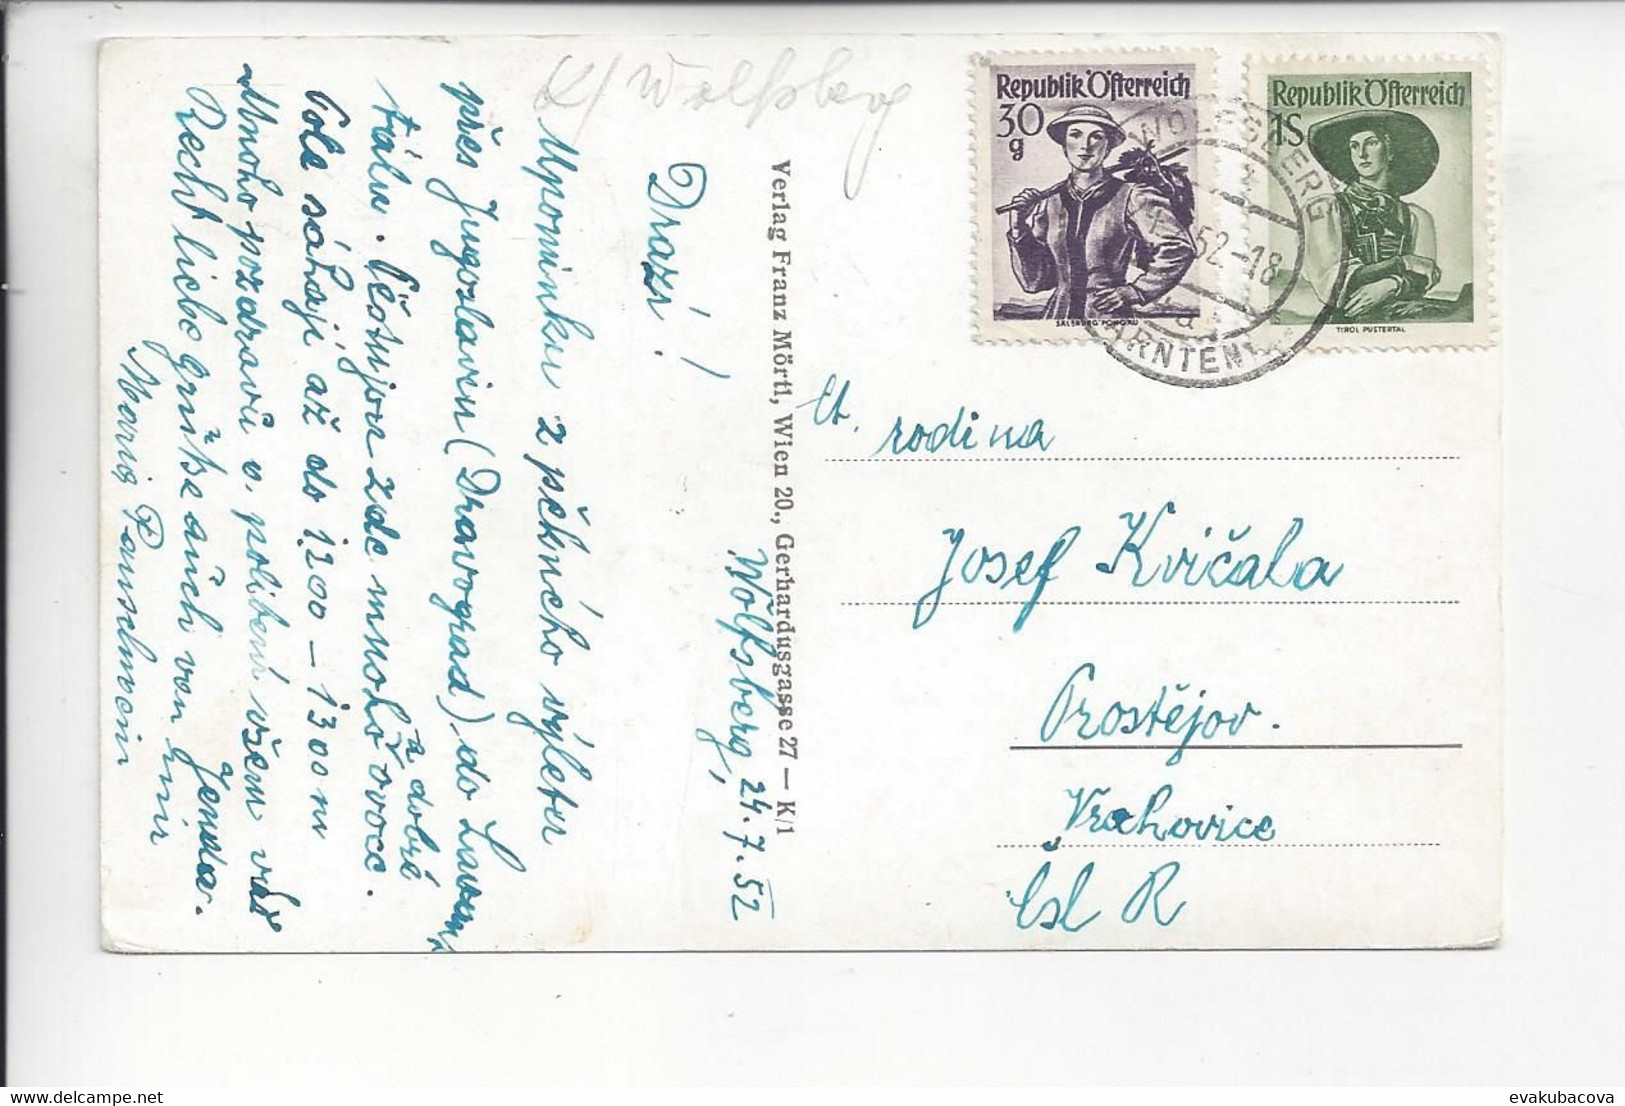 K/ Wolfsberg
Wolfsberg, 24.7.52
Drazí!
Upomínku z pěkného výletu
přes Jugoslavii (Dravograd) do Lavant
tálu. Cestujou zde mnoho
z dobré ovoce.
Pole sáhají až do 1200 – 1300 m
Mnoho pozdravů a políbení všem vás
Jenda.
Recht liebe Grüße auch von Emir
Maria
Verlag Franz Mörtl, Wien 20., Gerhardusgasse 27 — K/1
Republik Österreich
30
g
SALZBURG PONGAU
Republik Österreich
1S
TIROL PUSTERTAL
WOLFSBERG
52.-18
KÄRNTEN
Ct. rodina
Josef Kvičala
Prostějov.
Vrahovice
Čsl R
evakubacova
delcampe.net